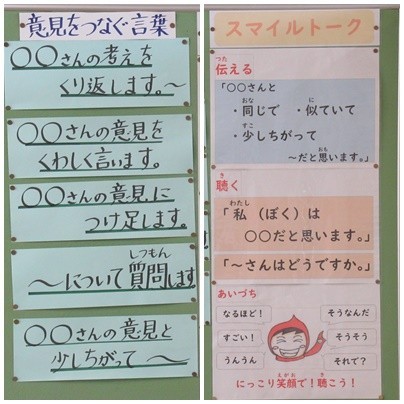 意見をつなぐ言葉
〇〇さんの考えを
くり返します。〜
〇〇さんの意見を
くわしく言います。
〇〇さんの意見に
つけ足します。
しつもん
〜について質問します
〇〇さんの意見と
少しちがって 〜
スマイルトーク
つた
伝える
「〇〇さんと
おな に
・同じで ・似ていて
すこ
・少しちがって
おも
〜だと思います。」
き
聴く
わたし
「私(ぼく)は
〇〇だと思います。」
「〜さんはどうですか。」
あいづち
なるほど! そうなんだ
すごい! そうそう
うんうん それで?
えがお き
にっこり笑顔で!聴こう!